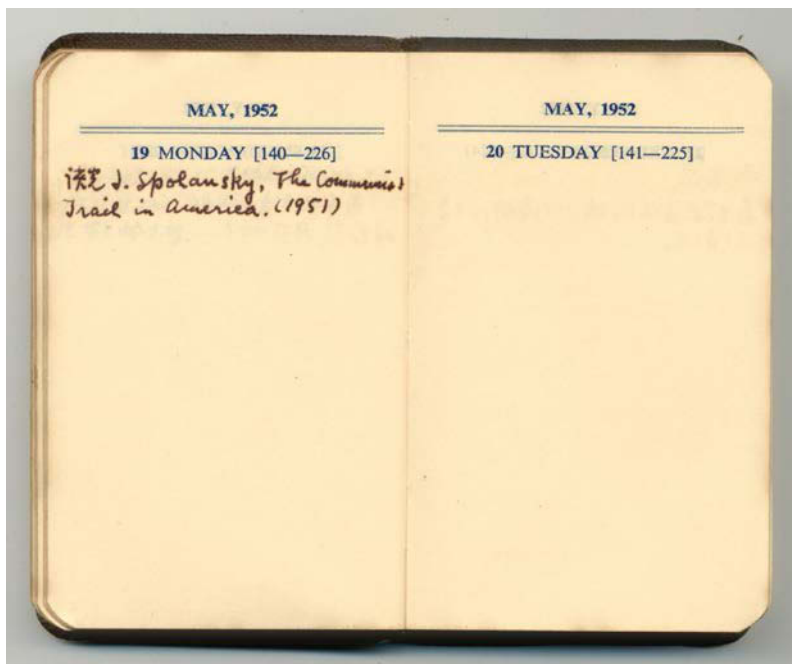 MAY, 1952
19 MONDAY [140—226]
读完 J. Spolansky, The Communist
Trail in America. (1951)
MAY, 1952
20 TUESDAY [141—225]